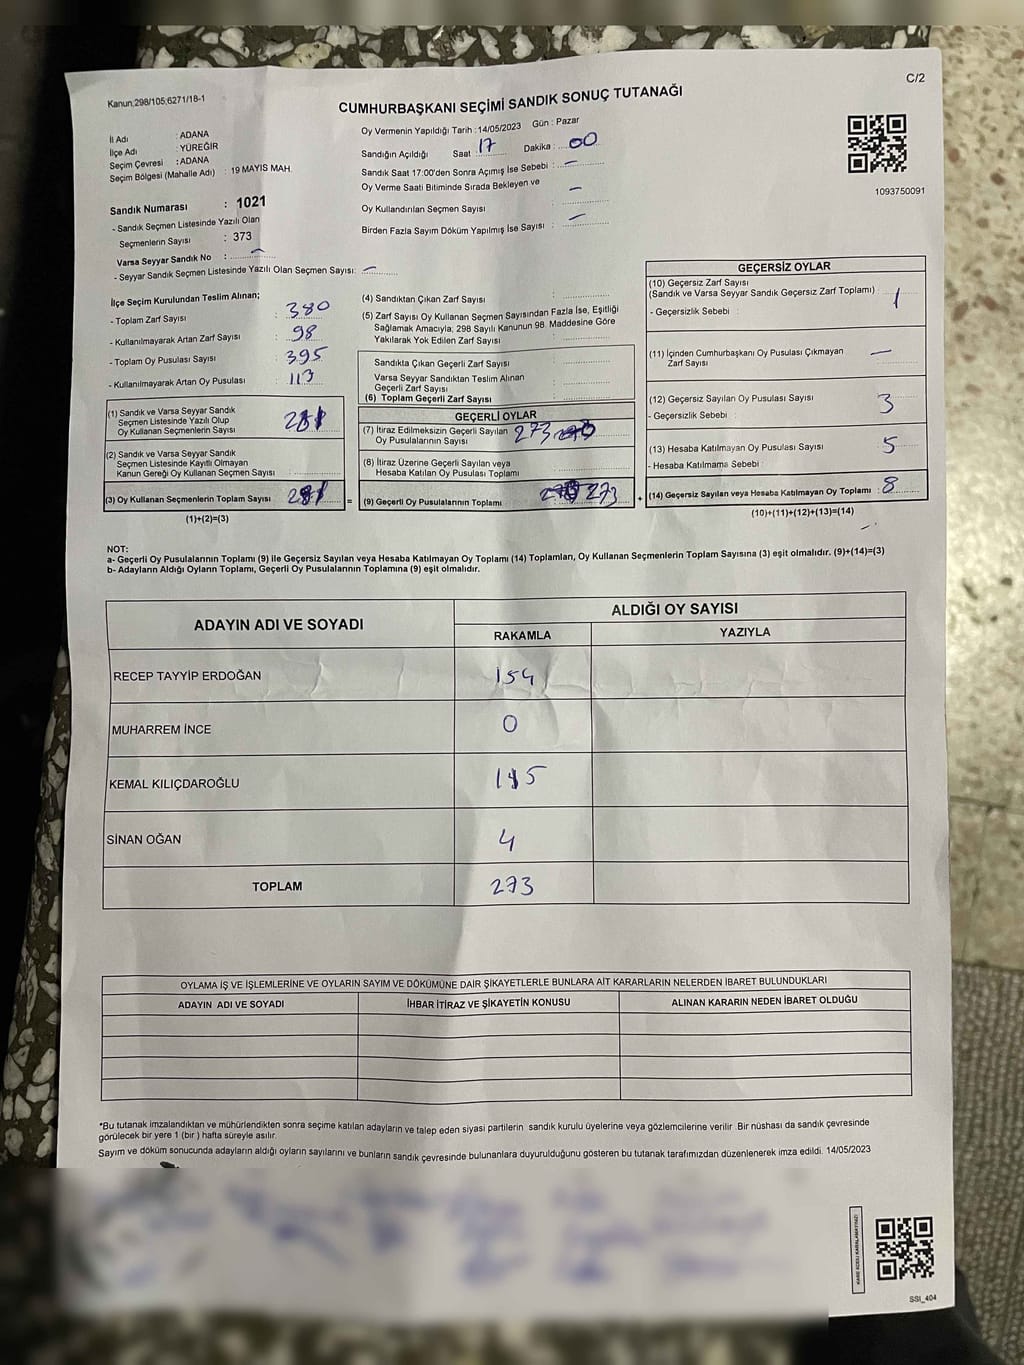 C/2
Kanun;298/105;6271/18-1
CUMHURBAŞKANI SEÇİMİ SANDIK SONUÇ TUTANAĞI
İl Adı : ADANA
İlçe Adı : YÜREĞİR
Seçim Çevresi : ADANA
Seçim Bölgesi (Mahalle Adı) : 19 MAYIS MAH.
Sandık Numarası : 1021
- Sandık Seçmen Listesinde Yazılı Olan
Seçmenlerin Sayısı : 373
Varsa Seyyar Sandık No : –
- Seyyar Sandık Seçmen Listesinde Yazılı Olan Seçmen Sayısı: –
Oy Vermenin Yapıldığı Tarih : 14/05/2023 Gün : Pazar
Sandığın Açıldığı Saat 17 Dakika : 00
Sandık Saat 17:00'den Sonra Açımış İse Sebebi : –
Oy Verme Saati Bitiminde Sırada Bekleyen ve –
Oy Kullandırılan Seçmen Sayısı :
Birden Fazla Sayım Döküm Yapılmış İse Sayısı : –
1093750091
İlçe Seçim Kurulundan Teslim Alınan;
- Toplam Zarf Sayısı : 380
- Kullanılmayarak Artan Zarf Sayısı : 98
- Toplam Oy Pusulası Sayısı : 395
- Kullanılmayarak Artan Oy Pusulası : 113
(1) Sandık ve Varsa Seyyar Sandık
Seçmen Listesinde Yazılı Olup
Oy Kullanan Seçmenlerin Sayısı 281
(2) Sandık ve Varsa Seyyar Sandık
Seçmen Listesinde Kayıtlı Olmayan
Kanun Gereği Oy Kullanan Seçmen Sayısı :
(3) Oy Kullanan Seçmenlerin Toplam Sayısı : 281 =
(1)+(2)=(3)
(4) Sandıktan Çıkan Zarf Sayısı :
(5) Zarf Sayısı Oy Kullanan Seçmen Sayısından Fazla İse, Eşitliği
Sağlamak Amacıyla; 298 Sayılı Kanunun 98. Maddesine Göre
Yakılarak Yok Edilen Zarf Sayısı :
Sandıkta Çıkan Geçerli Zarf Sayısı :
Varsa Seyyar Sandıktan Teslim Alınan
Geçerli Zarf Sayısı :
(6) Toplam Geçerli Zarf Sayısı :
GEÇERLİ OYLAR
(7) İtiraz Edilmeksizin Geçerli Sayılan
Oy Pusulalarının Sayısı 273
(8) İtiraz Üzerine Geçerli Sayılan veya
Hesaba Katılan Oy Pusulası Toplamı :
(9) Geçerli Oy Pusulalarının Toplamı 273 +
GEÇERSİZ OYLAR
(10) Geçersiz Zarf Sayısı
(Sandık ve Varsa Seyyar Sandık Geçersiz Zarf Toplamı) : 1
- Geçersizlik Sebebi :
(11) İçinden Cumhurbaşkanı Oy Pusulası Çıkmayan –
Zarf Sayısı
(12) Geçersiz Sayılan Oy Pusulası Sayısı 3
- Geçersizlik Sebebi :
(13) Hesaba Katılmayan Oy Pusulası Sayısı 5
- Hesaba Katılmama Sebebi :
(14) Geçersiz Sayılan veya Hesaba Katılmayan Oy Toplamı : 8
(10)+(11)+(12)+(13)=(14)
NOT:
a- Geçerli Oy Pusulalarının Toplamı (9) ile Geçersiz Sayılan veya Hesaba Katılmayan Oy Toplamı (14) Toplamları, Oy Kullanan Seçmenlerin Toplam Sayısına (3) eşit olmalıdır. (9)+(14)=(3)
b- Adayların Aldığı Oyların Toplamı, Geçerli Oy Pusulalarının Toplamına (9) eşit olmalıdır.
ADAYIN ADI VE SOYADI
ALDIĞI OY SAYISI
RAKAMLA YAZIYLA
RECEP TAYYİP ERDOĞAN 154
MUHARREM İNCE 0
KEMAL KILIÇDAROĞLU 115
SİNAN OĞAN 4
TOPLAM 273
OYLAMA İŞ VE İŞLEMLERİNE VE OYLARIN SAYIM VE DÖKÜMÜNE DAİR ŞİKAYETLERLE BUNLARA AİT KARARLARIN NELERDEN İBARET BULUNDUKLARI
ADAYIN ADI VE SOYADI İHBAR İTİRAZ VE ŞİKAYETİN KONUSU ALINAN KARARIN NEDEN İBARET OLDUĞU
*Bu tutanak imzalandıktan ve mühürlendikten sonra seçime katılan adayların ve talep eden siyasi partilerin sandık kurulu üyelerine veya gözlemcilerine verilir. Bir nüshası da sandık çevresinde
görülecek bir yere 1 (bir ) hafta süreyle asılır.
Sayım ve döküm sonucunda adayların aldığı oyların sayılarını ve bunların sandık çevresinde bulunanlara duyurulduğunu gösteren bu tutanak tarafımızdan düzenlenerek imza edildi. 14/05/2023
KARE KODU KARALAMAYINIZ!
SSI_404